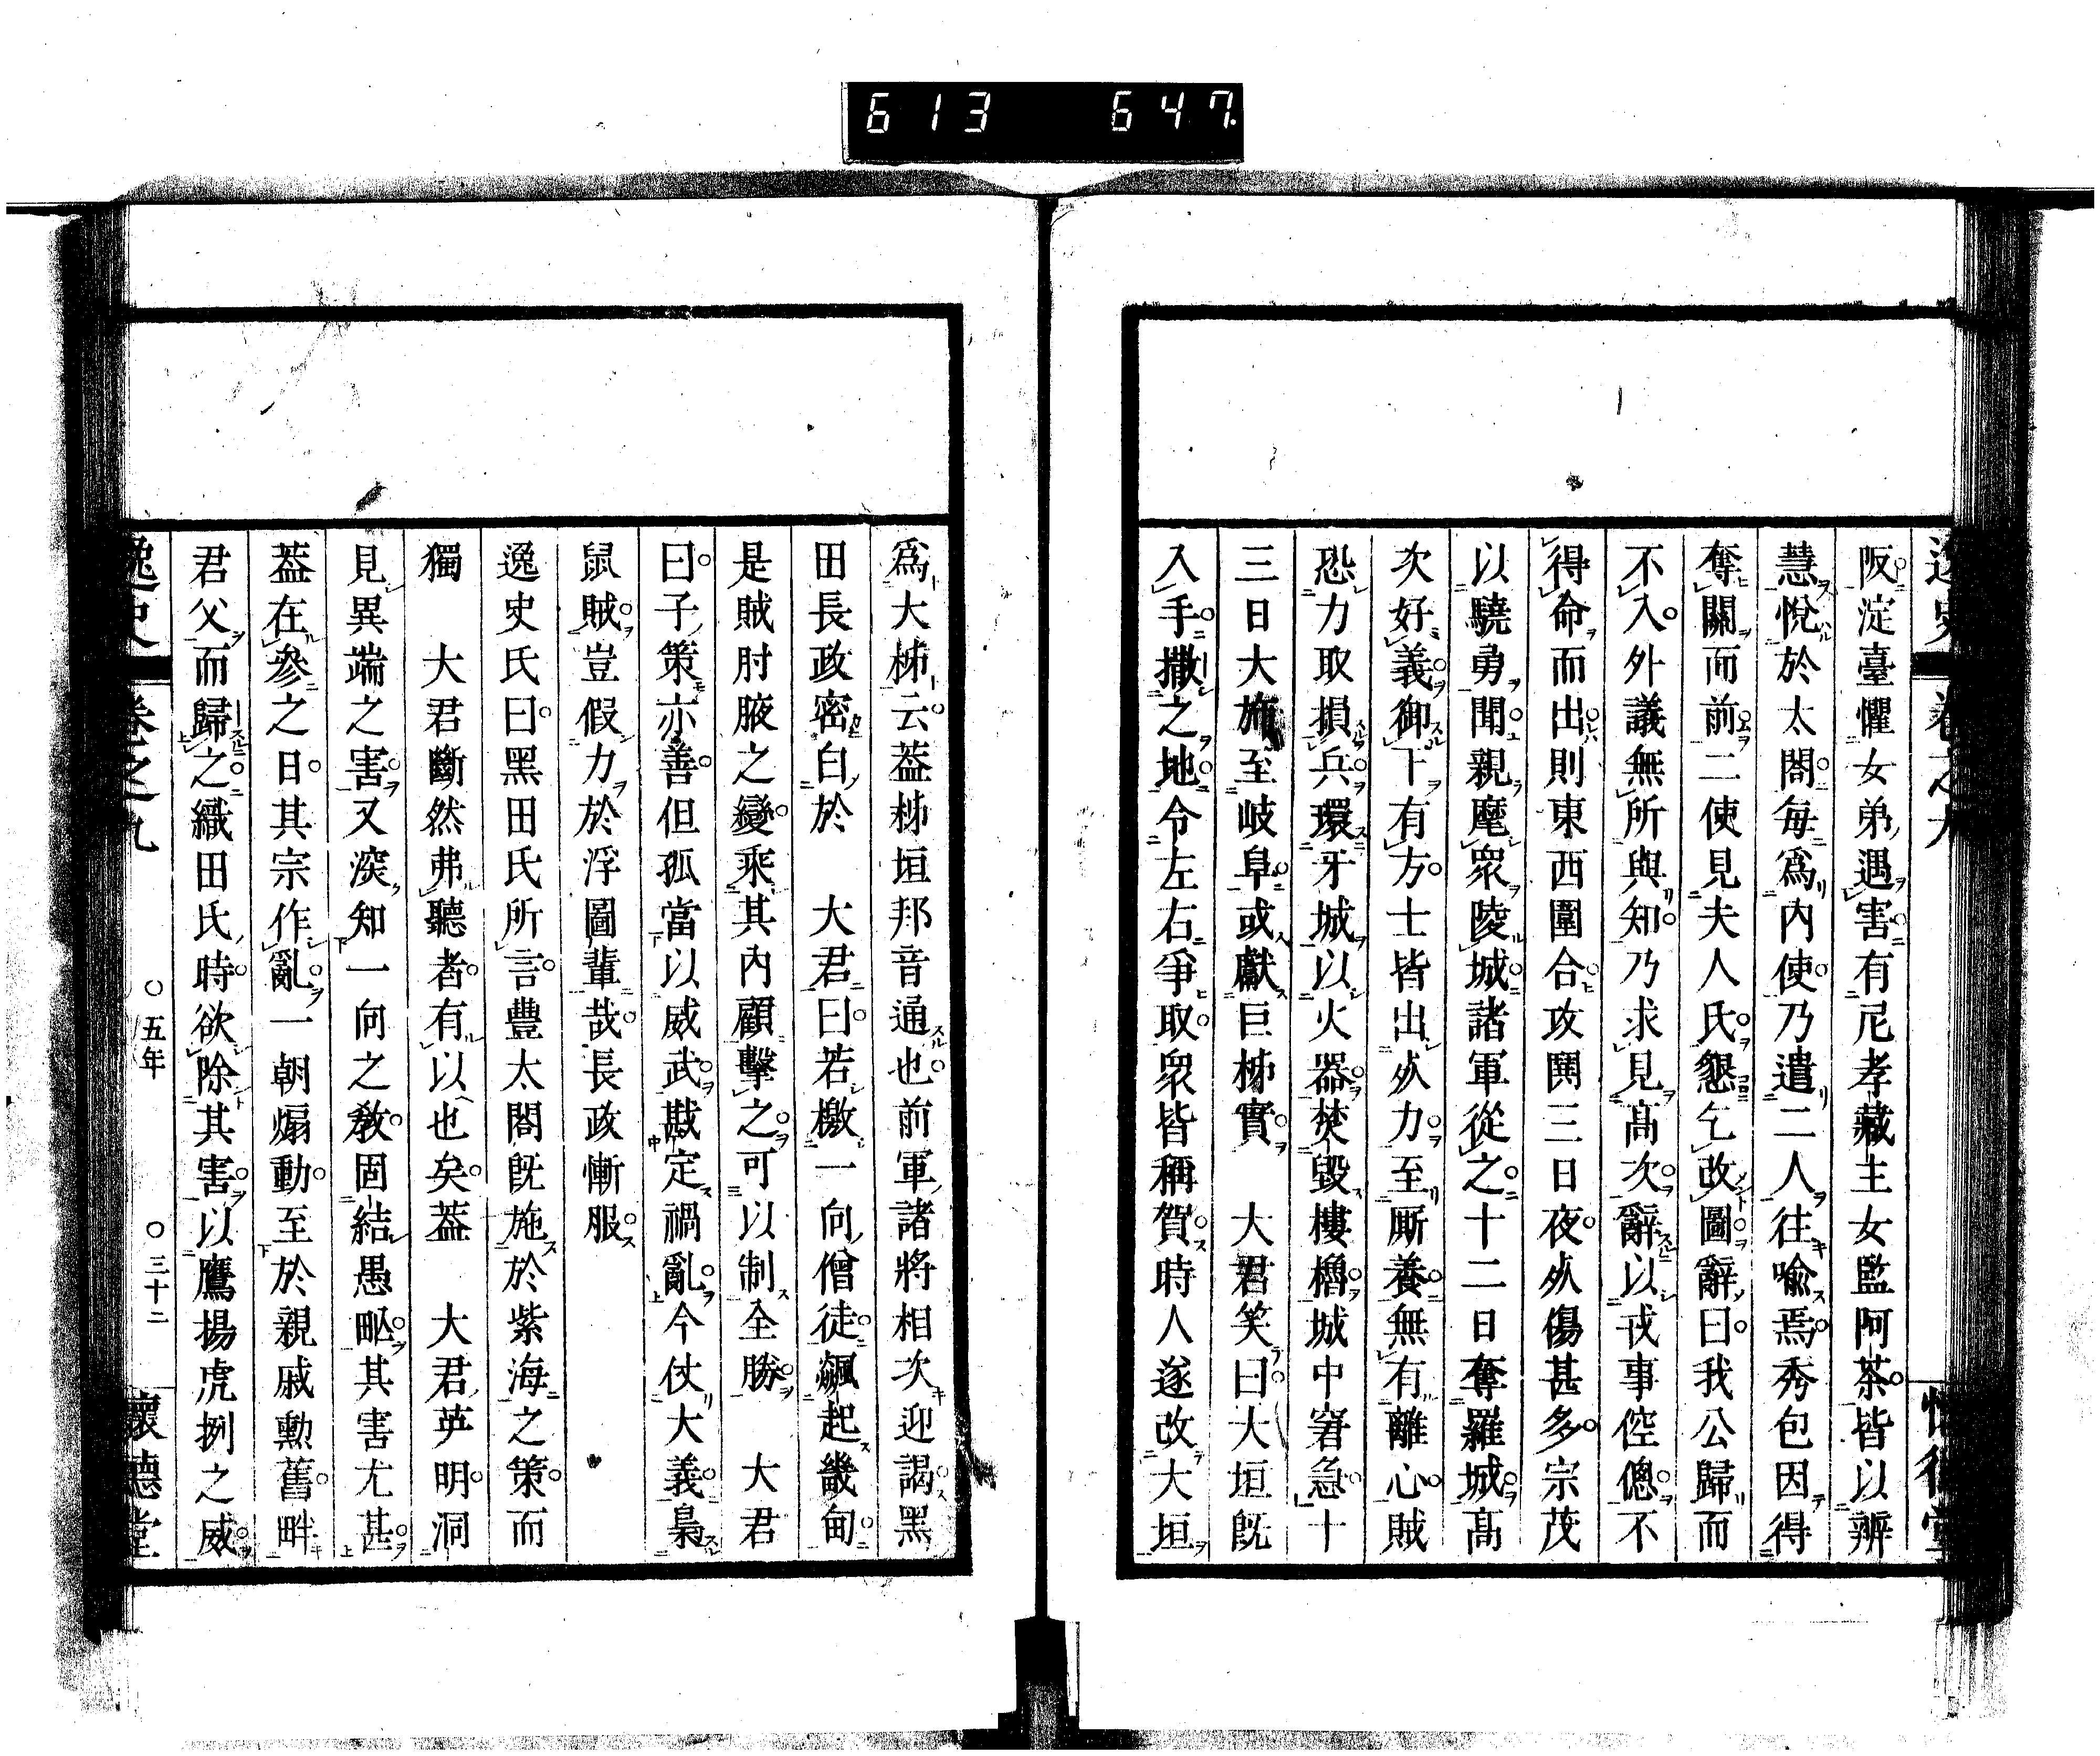 613 647
阪淀臺懼女弟遇害有尼孝藏主女監阿茶皆以辨
慧悅於太閤每爲內使乃遣二人往喩焉秀包因得
奪關而前二使見夫人氏懇乞改圖辭曰我公歸而
不入外議無所與知乃求見高次辭以戎事倥傯不
得命而出則東西圍合攻鬨三日夜𣦸傷甚多宗茂
以驍勇聞親麾衆陵城諸軍從之十二日奪羅城高
次好義御下有方士皆出𣦸力至厮養無有離心賊
恐力取損兵環牙城以火器焚毀樓櫓城中窘急十
三日大施至岐阜或獻巨柹實　大君笑曰大垣旣
入手撒之地令左右爭取衆皆稱賀時人遂改大垣
爲大柹云葢柹垣邦音通也前軍諸將相次迎謁黑
田長政密白於　大君曰若檄一向僧徒飆起畿甸
是賊肘腋之變乘其內顧擊之可以制全勝　大君
曰子策亦善但孤當以威武戡定禍亂今仗大義梟
鼠賊豈假力於浮圖輩哉長政慚服
逸史氏曰黑田氏所言豐太閤旣施於紫海之策而
獨　大君斷然弗聽者有以也矣葢　大君英明洞
見異端之害又深知一向之敎固結愚氓其害尤甚
葢在參之日其宗作亂一朝煽動至於親戚勳舊畔
君父而歸之織田氏時欲除其害以鷹揚虎捌之威
逸史 卷之九 〇五年 〇三十二 懷德堂